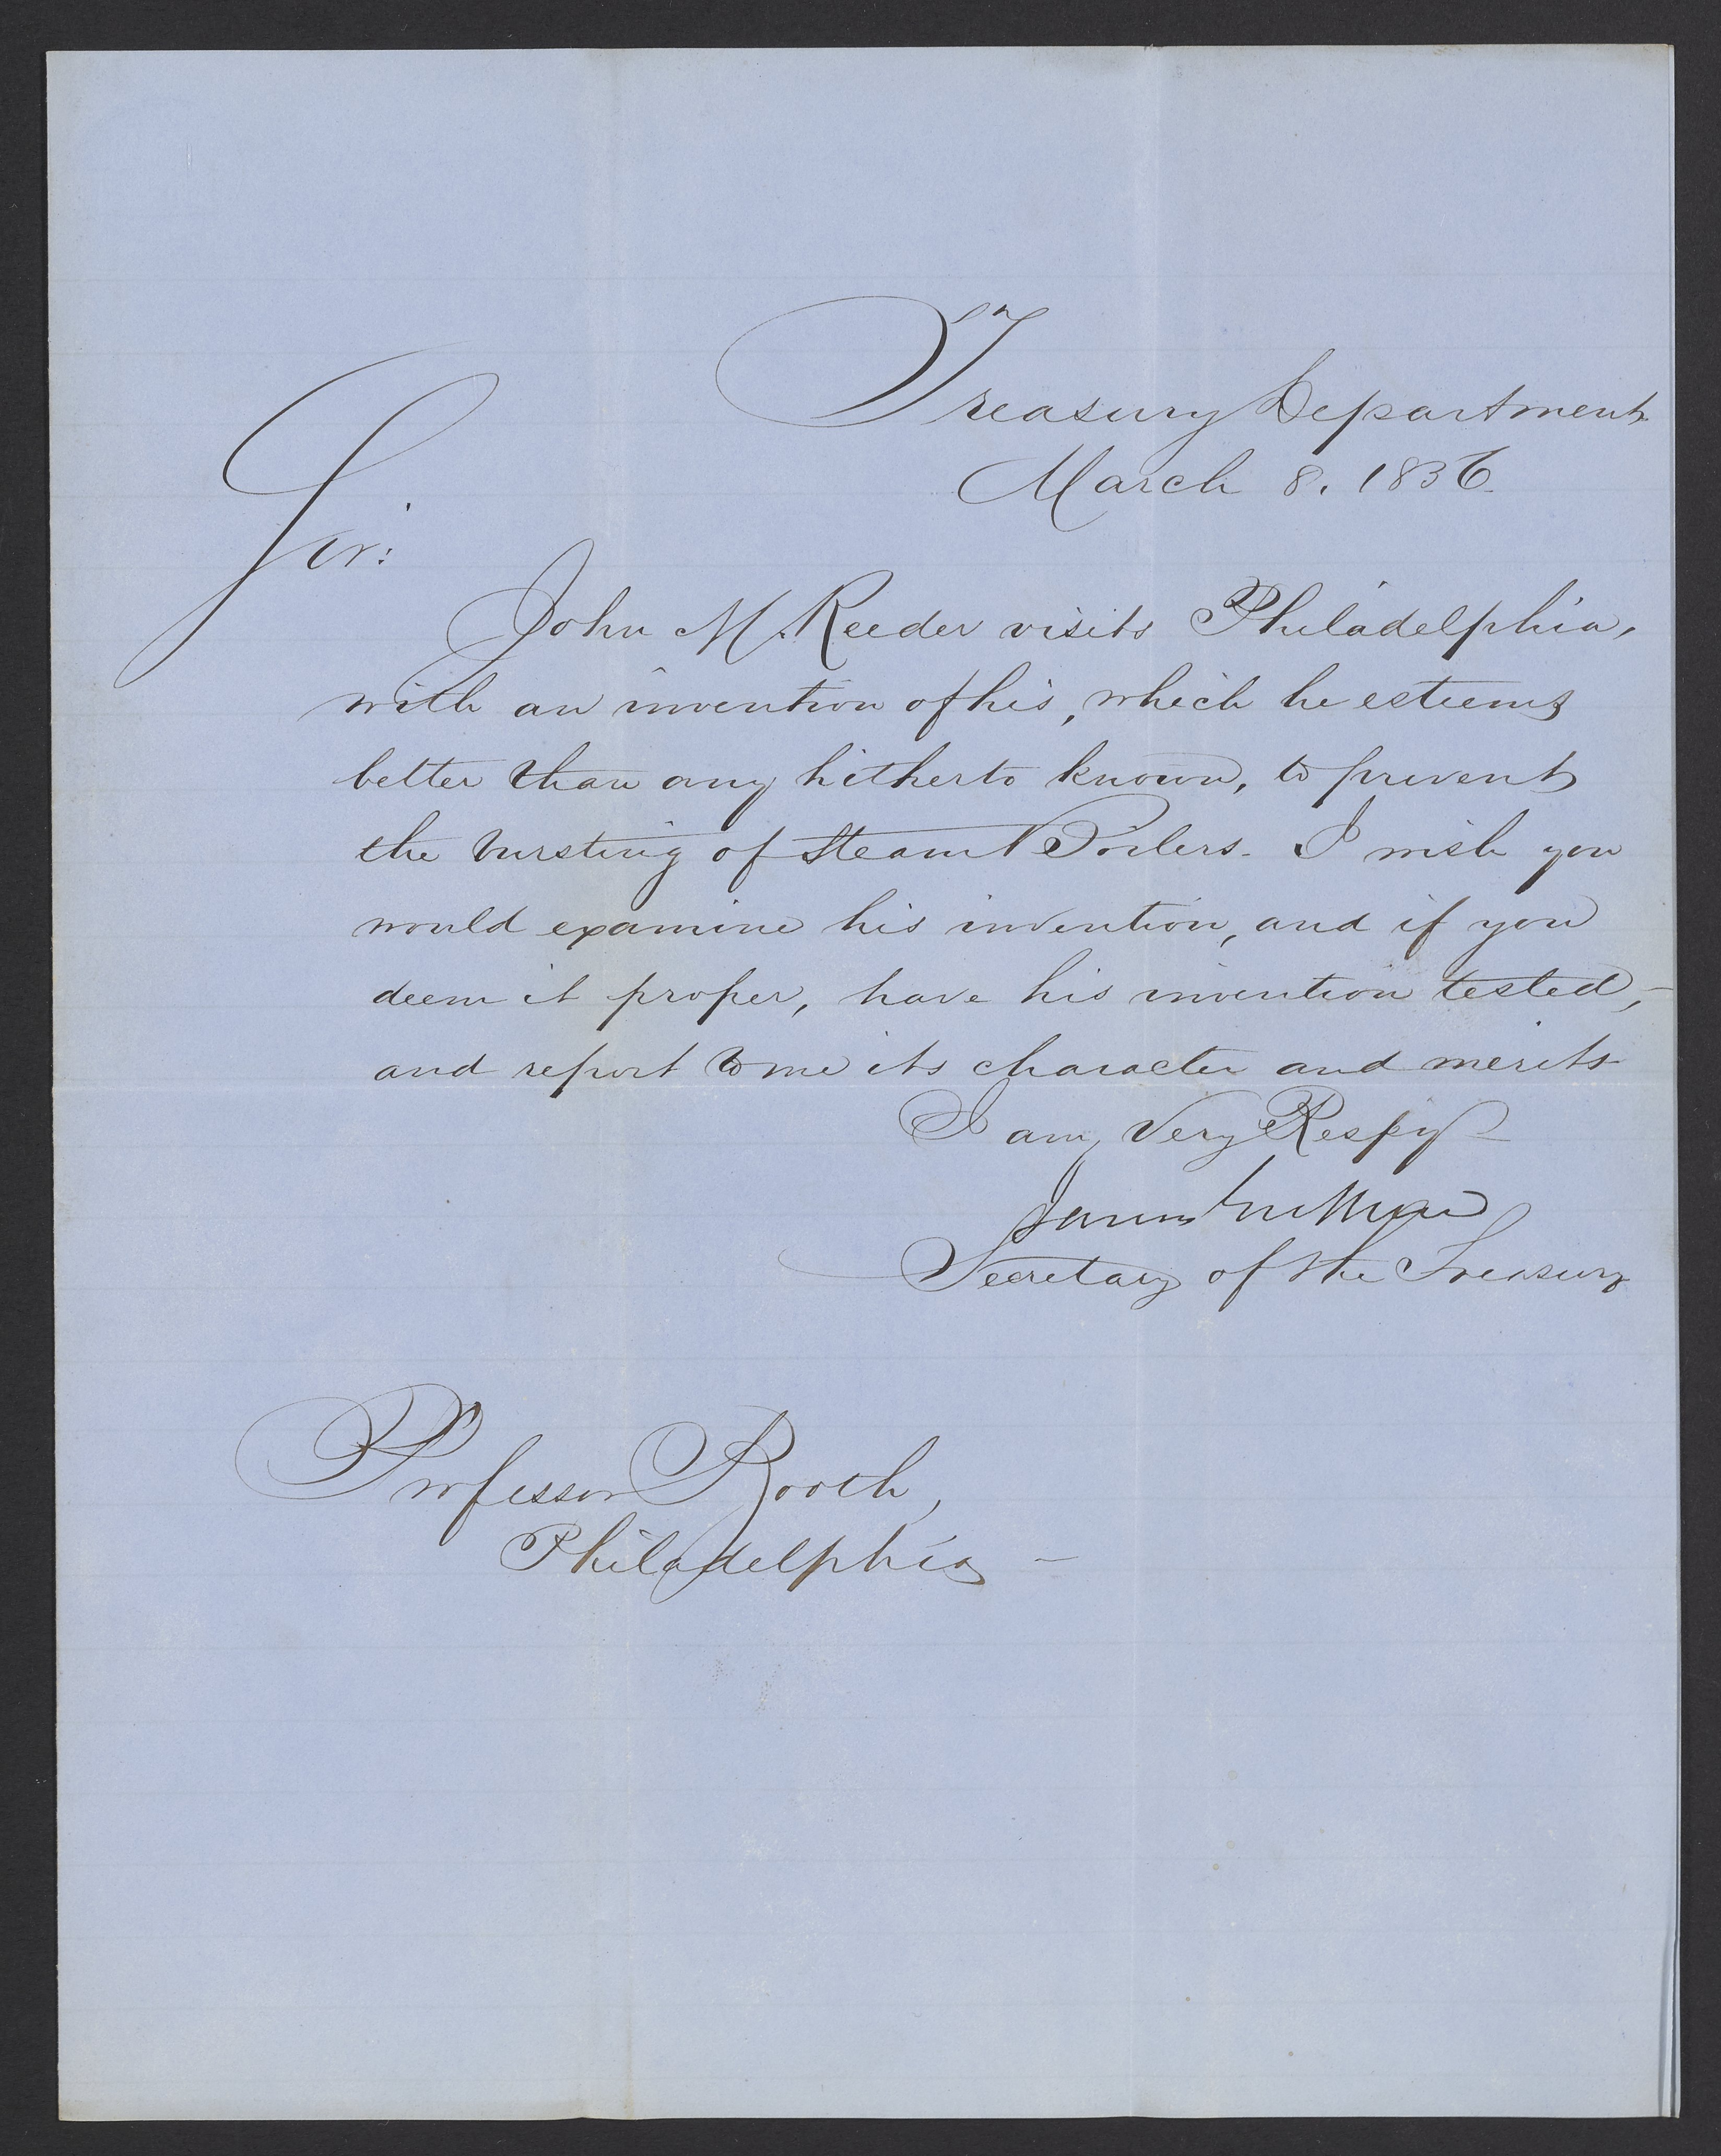 Treasury Department
March 8. 1836.
Sir:
John M. Reeder visits Philadelphia,
with an invention of his, which he esteems
better than any hitherto known, to prevent
the bursting of Steam Boilers. I wish you
would examine his invention, and if you
deem it proper, have his invention tested,-
and report to me its character and merits
I am, Very Respy
James Guthrie
Secretary of the Treasury
Professor Booth,
Philadelphia -